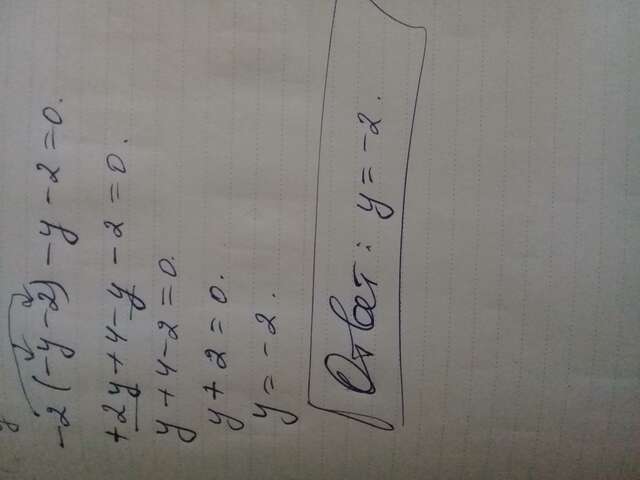 -2(-y-2)-y-2=0.
+2y+4-y-2=0.
y+4-2=0.
y+2=0.
y=-2.
Ответ: y=-2.